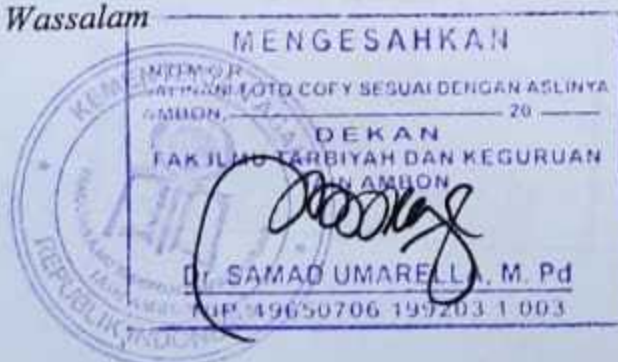 Wassalam
MENGESAHKAN
NOMOR
SALINAN/FOTO COFY SESUAI DENGAN ASLINYA
AMBON, 20
DEKAN
FAK ILMU TARBIYAH DAN KEGURUAN
IAIN AMBON
Dr. SAMAD UMARELLA, M. Pd
NIP. 19650706 199203 1 003
KEMENTERIAN AGAMA
REPUBLIK INDONESIA